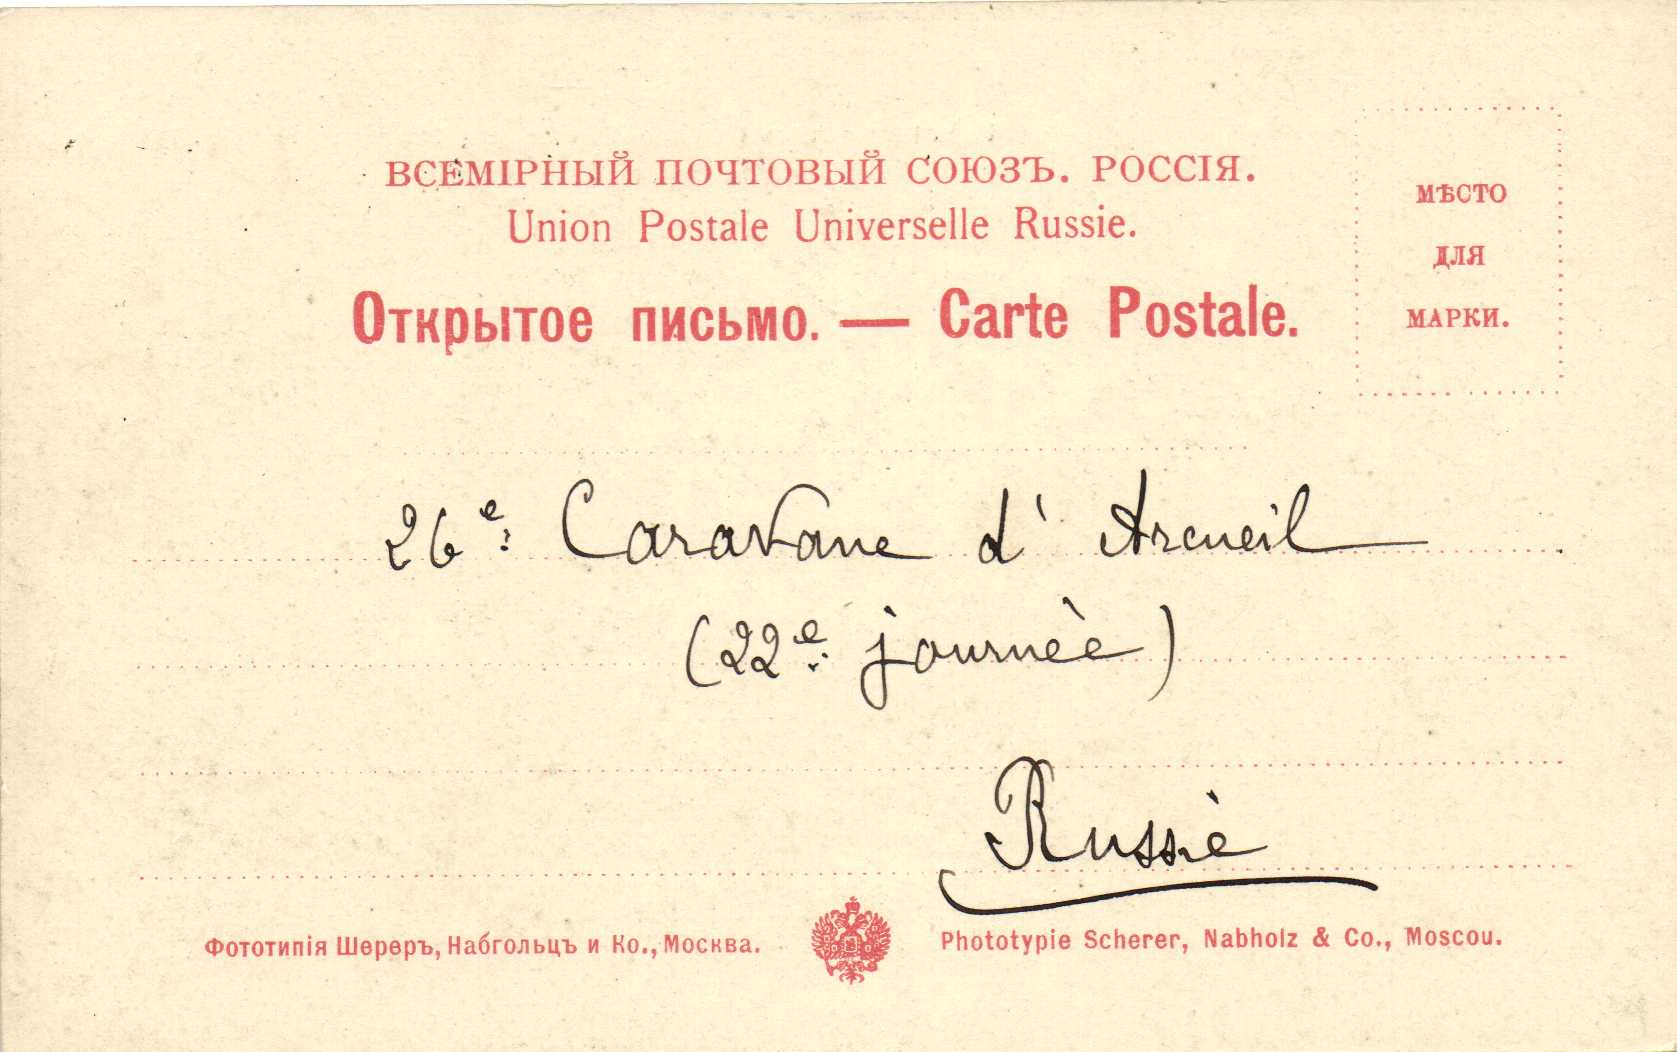 ВСЕМІРНЫЙ ПОЧТОВЫЙ СОЮЗЪ. РОССІЯ.
Union Postale Universelle Russie.
Открытое письмо. — Carte Postale.
МѢСТО
ДЛЯ
МАРКИ.
26e: Caravane d'Arcueil
(22e: journée)
Russie
Фототипія Шереръ, Набгольцъ и Ко., Москва.
Phototypie Scherer, Nabholz & Co., Moscou.